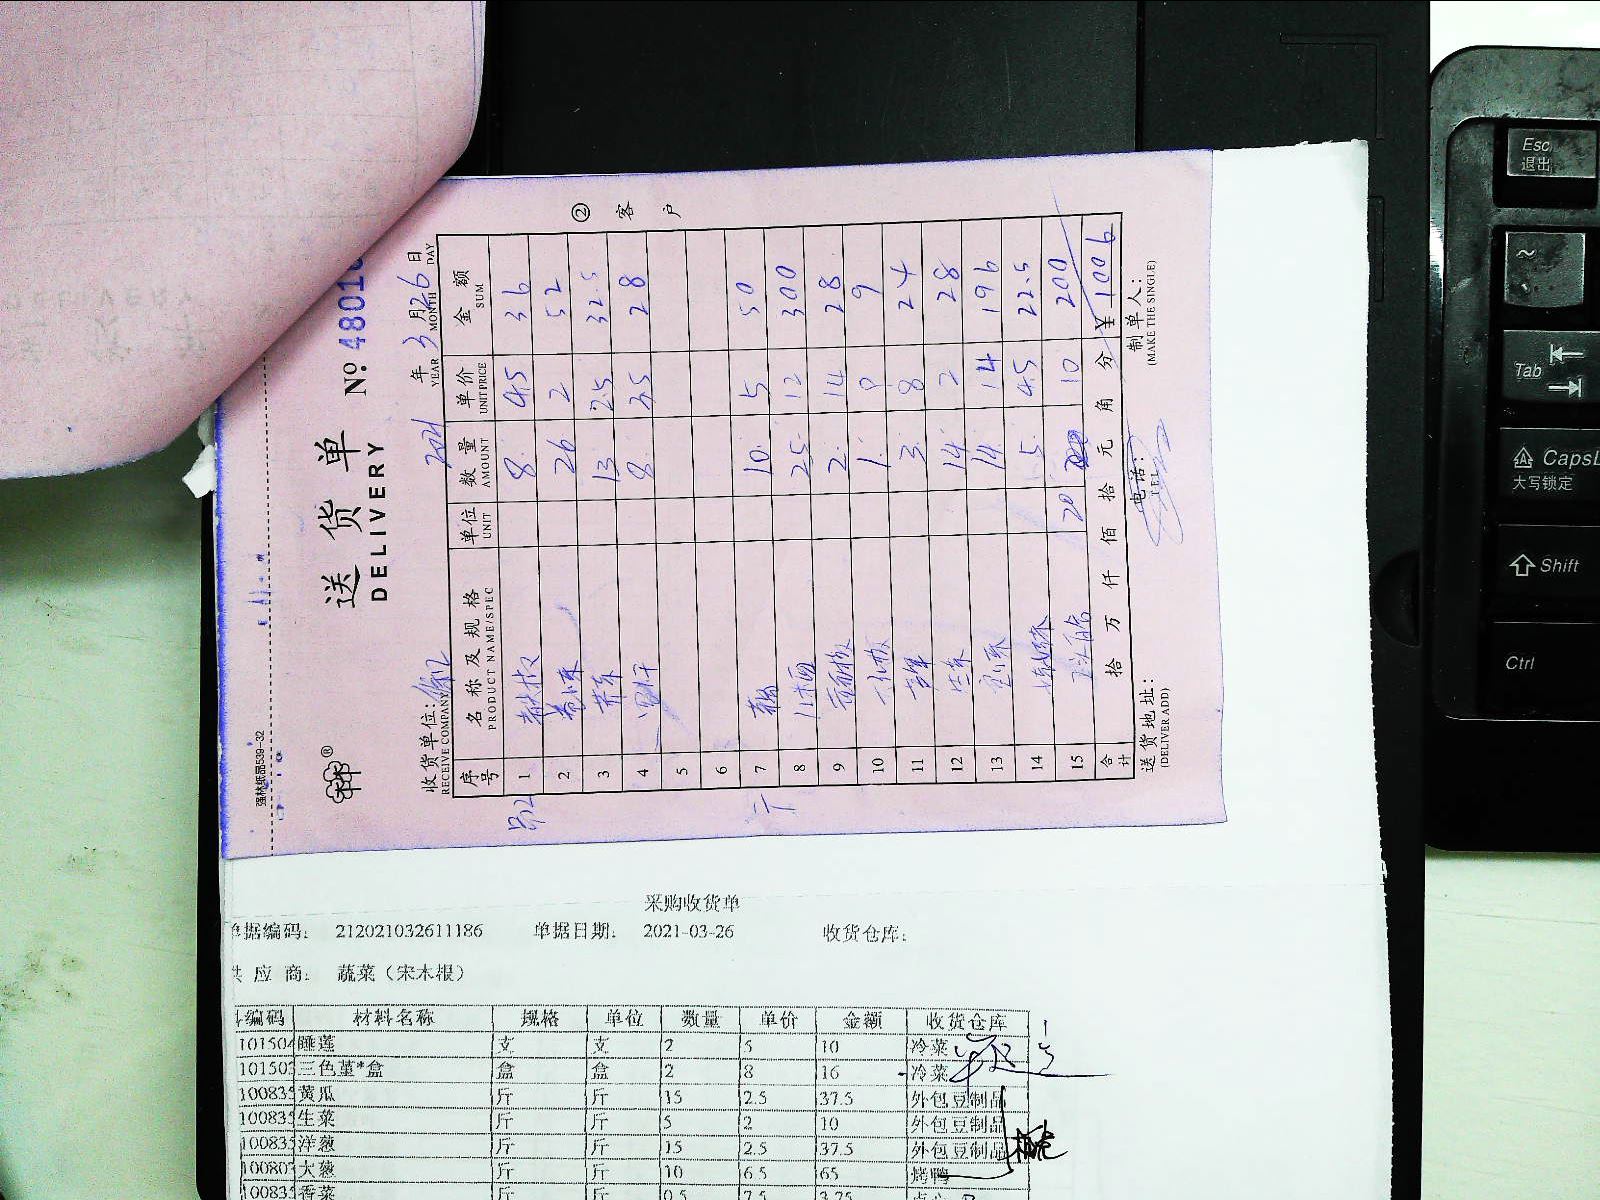 送货单
DELIVERY
№ 48010
2021 年 3 月 26 日
YEAR MONTH DAY
收货单位:
RECEIVE COMPANY
② 客户
序号 名称及规格 单位 数量 单价 金额
PRODUCT NAME/SPEC UNIT AMOUNT UNIT PRICE SUM
1 8 4.5 36
2 26 2 52
3 13 2.5 32.5
4 8 3.5 28
5
6
7 10 5 50
8 25 12 300
9 2 14 28
10 1 9 9
11 3 8 24
12 14 2 28
13 14 14 196
14 5 4.5 22.5
15 20 10 200
合计 拾 万 仟 佰 拾 元 角 分 ¥ 1006
送货地址: 电话: 制单人:
(DELIVER ADD) TEL (MAKE THE SINGLE)
强林纸品539-32
采购收货单
单据编码: 212021032611186 单据日期: 2021-03-26 收货仓库:
供应商: 蔬菜(宋木根)
编码 材料名称 规格 单位 数量 单价 金额 收货仓库
101504 睡莲 支 支 2 5 10 冷菜
101503 三色堇*盒 盒 盒 2 8 16 冷菜
100835 黄瓜 斤 斤 15 2.5 37.5 外包豆制品
100835 生菜 斤 斤 5 2 10 外包豆制品
100835 洋葱 斤 斤 15 2.5 37.5 外包豆制品
100803 大葱 斤 斤 10 6.5 65 烤鸭
100835 香菜 斤 斤 0.5 7.5 3.75
Esc
退出
~
Tab
CapsL
大写锁定
Shift
Ctrl